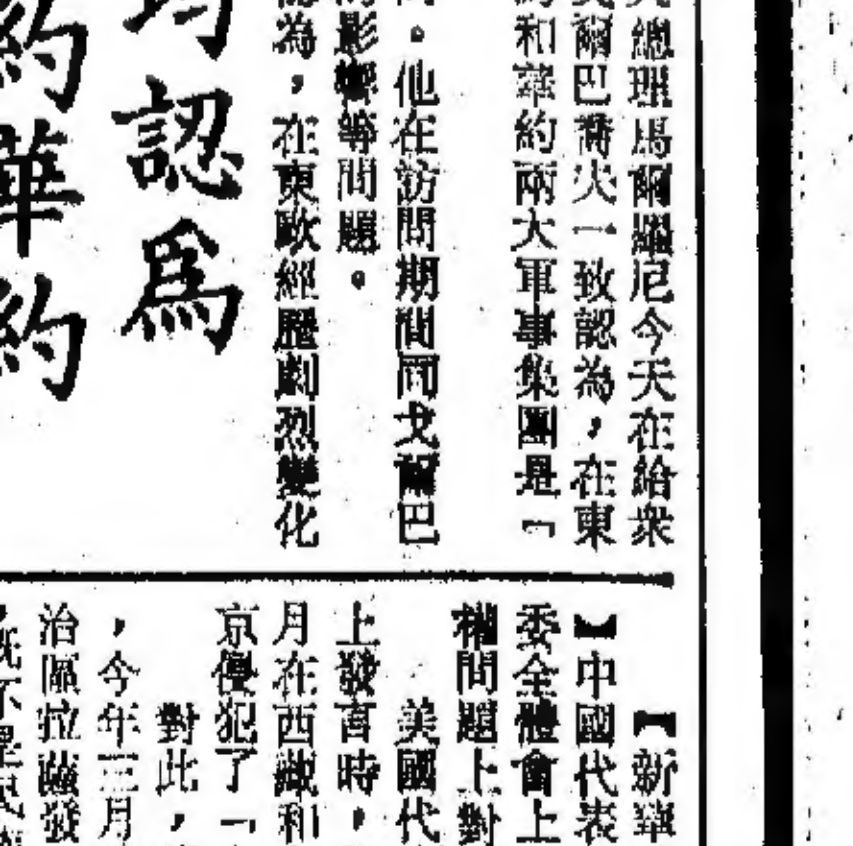 總理馬爾羅尼今天在給衆
爾巴喬夫一致認為，在東
和華約兩大軍事集團是「
。他在訪問期間同戈爾巴
影響等問題。
為，在東歐經歷劇烈變化
均認爲
約華約
【新華
】中國代表
委全體會上
權問題上對
美國代
上發言時，
月在西藏和
京侵犯了「
對此，
，今年三月
治區拉薩發